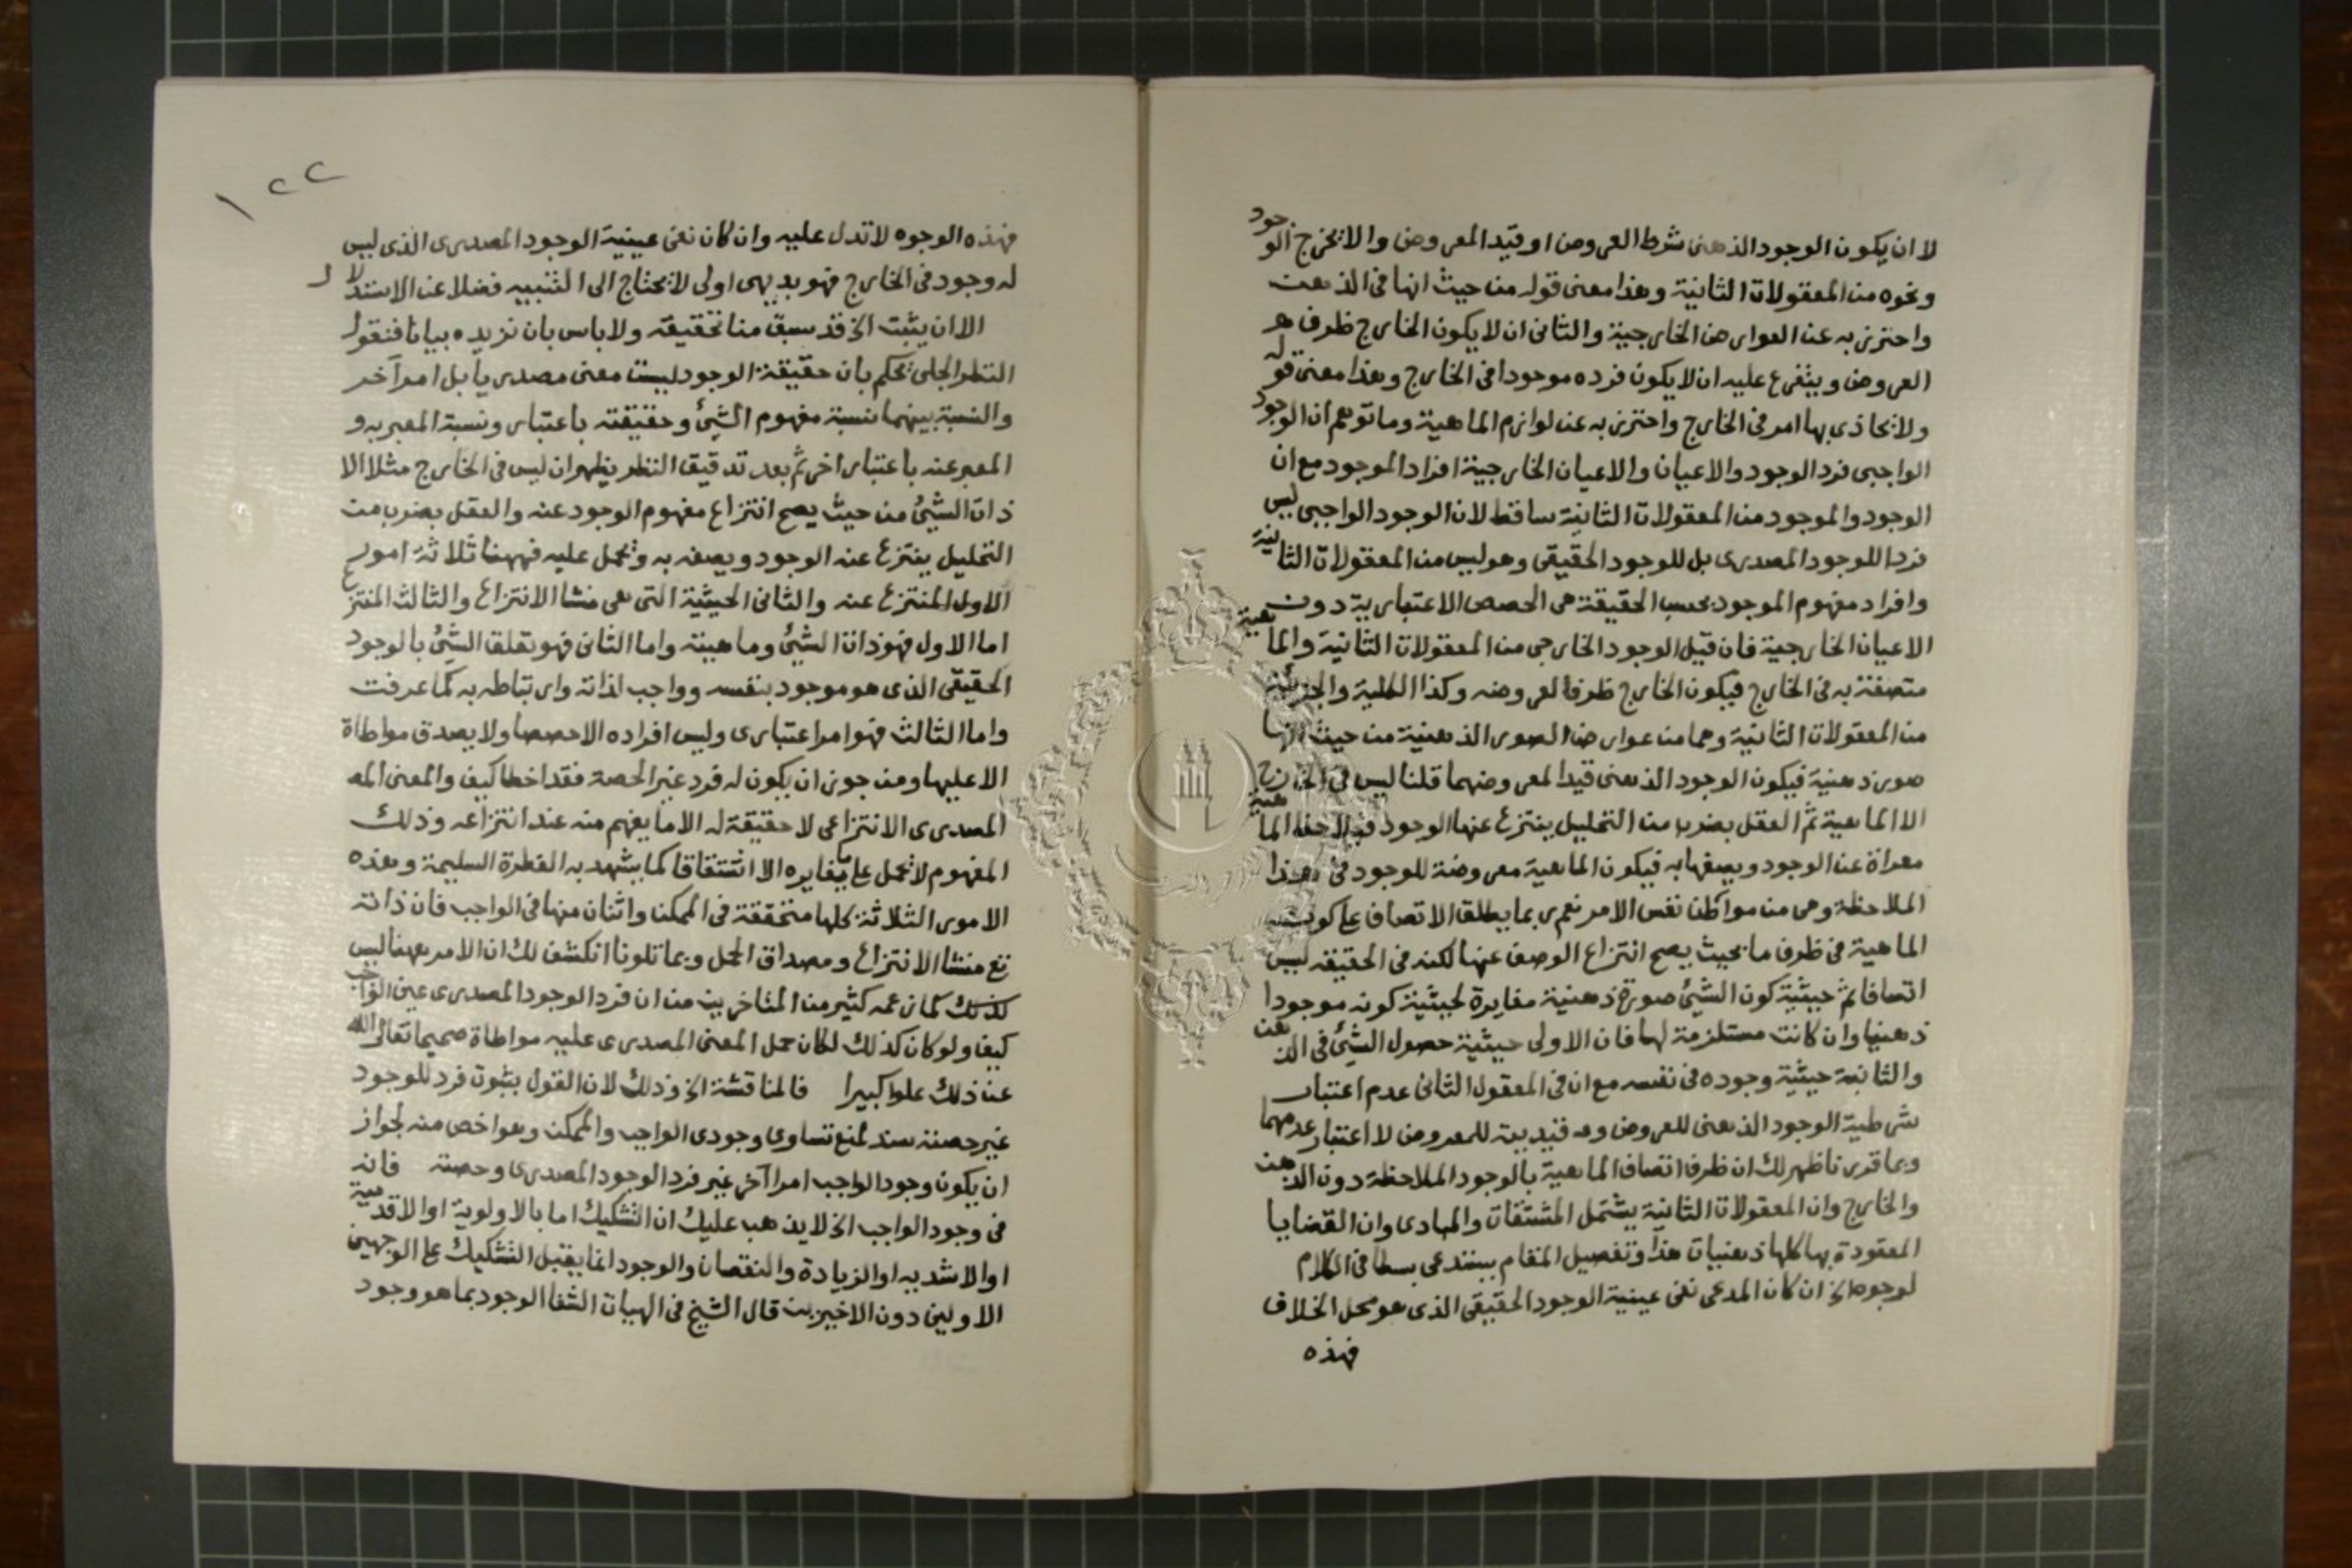 لا ان يكون الوجود الذهنى شرط العروض او قيد المعروض والا لخرج الوجود
ونحوه من المعقولات الثانية وهذا معنى قوله من حيث انها فى الذهن
واحترز به عن العوارض الخارجية والثانى ان لا يكون الخارج ظرف
العروض ويتفرع عليه ان لا يكون فرده موجودا فى الخارج وهذا معنى قوله
ولا يحاذى بها امر فى الخارج واحترز به عن لوازم الماهية وما توهم ان الوجود
الواجبى فرد الوجود والاعيان والاعيان الخارجية افراد الموجود مع ان
الوجود والموجود من المعقولات الثانية ساقط لان الوجود الواجبى ليس
فردا للوجود المصدرى بل للوجود الحقيقى وهو ليس من المعقولات الثانية
وافراد مفهوم الموجود بحسب الحقيقة هى الحصص الاعتبارية دون
الاعيان الخارجية فان قيل الوجود الخارجى من المعقولات الثانية والماهية
متصفة به فى الخارج فيكون الخارج ظرفا لعروضه وكذا الكلية والجزئية
من المعقولات الثانية وهما من عوارض الصور الذهنية من حيث انها
صور ذهنية فيكون الوجود الذهنى قيدا لمعروضهما قلنا ليس فى الخارج
الا الماهية ثم العقل بضرب من التحليل ينتزع عنها الوجود فيلاحظ الماهية
معراة عن الوجود ويصفها به فيكون الماهية معروضة للوجود فى هذا
الملاحظة وهى من مواطن نفس الامر نعم ربما يطلق الاتصاف على كون
الماهية فى ظرف ما بحيث يصح انتزاع الوصف عنها لكنه فى الحقيقه ليس
اتصافا ثم حيثية كون الشئ صورة ذهنية مغايرة لحيثية كونه موجودا
ذهنيا وان كانت مستلزمة لها فان الاولى حيثية حصول الشئ فى الذهن
والثانية حيثية وجوده فى نفسه مع ان فى المعقول الثانى عدم اعتبار
شرطية الوجود الذهنى للعروض وعدم قيديته للمعروض لا اعتبار عدمهما
وبما قررنا ظهر لك ان ظرف اتصاف الماهية بالوجود الملاحظة دون الذهن
والخارج وان المعقولات الثانية يشتمل المشتقات والمبادى وان القضايا
المعقودة بها كلها ذهنيات هذا وتفصيل المقام يستدعى بسطا فى الكلام
لوجوه الخ ان كان المدعى نفى عينية الوجود الحقيقى الذى هو محل الخلاف
فهذه
١٢٢
فهذه الوجوه لا تدل عليه وان كان نفى عينية الوجود المصدرى الذى ليس
له وجود فى الخارج فهو بديهى اولى لا يحتاج الى التنبيه فضلا عن الاستدلال
الا ان يثبت الخ قد سبق منا تحقيقه ولا باس بان نزيده بيانا فنقول
النظر الجلى يحكم بان حقيقة الوجود ليست معنى مصدريا بل امرا آخر
والنسبة بينهما نسبة مفهوم الشئ وحقيقته باعتبار ونسبة المعبر به و
المعبر عنه باعتبار اخر ثم بعد تدقيق النظر يظهر ان ليس فى الخارج مثلا الا
ذات الشئ من حيث يصح انتزاع مفهوم الوجود عنه والعقل بضرب من
التحليل ينتزع عنه الوجود ويصفه به ويحمل عليه فههنا ثلاثة امور
الاول المنتزع عنه والثانى الحيثية التى هى منشا الانتزاع والثالث المنتزع
اما الاول فهو ذات الشئ وماهيته واما الثانى فهو تعلق الشئ بالوجود
الحقيقى الذى هو موجود بنفسه وواجب لذاته وارتباطه به كما عرفت
واما الثالث فهو امر اعتبارى وليس افراده الا حصصا ولا يصدق مواطاة
الا عليها ومن جوز ان يكون له فرد غير الحصة فقد اخطا كيف والمعنى المصـ
المصدرى الانتزاعى لا حقيقة له الا ما يفهم منه عند انتزاعه وذلك
المفهوم لا يحمل على ما يغايره الا اشتقاقا كما يشهد به الفطرة السليمة وهذه
الامور الثلاثة كلها متحققة فى الممكن واثنان منها فى الواجب فان ذاته
منشا الانتزاع ومصداق الحمل وبما تلونا انكشف لك ان الامر ههنا ليس
كذلك كما زعمه كثير من المتاخرين من ان فرد الوجود المصدرى عين الواجب
كيف ولو كان كذلك لكان حمل المعنى المصدرى عليه مواطاة صحيحا تعالى الله
عن ذلك علوا كبيرا فالمناقشة الخ وذلك لان القول بثبوت فرد للوجود
غير حصته سند لمنع تساوى وجودى الواجب والممكن وهو اخص منه لجواز
ان يكون وجود الواجب امرا آخر غير فرد الوجود المصدرى وحصته فانه
فى وجود الواجب الخ لا يذهب عليك ان التشكيك اما بالاولوية او الاقدمية
او الاشدية او الزيادة والنقصان والوجود انما يقبل التشكيك على الوجهين
الاولين دون الاخيرين قال الشيخ فى الهيات الشفا الوجود بما هو وجود